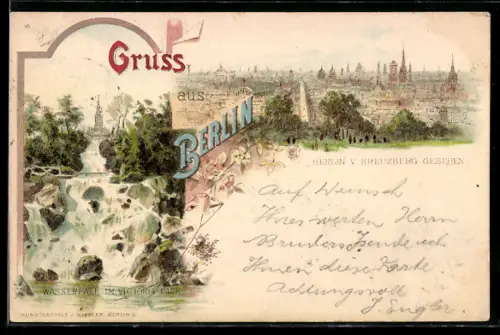 Gruss
aus
BERLIN
BERLIN V. KREUZBERG GESEHEN
Auf Wunsch
Ihres werten Herrn
Bruders sende ich
Ihnen diese Karte
Achtungsvoll
J. Engler.
WASSERFALL IM VICTORIA PARK
KUNSTANSTALT J. MIESLER, BERLIN S.